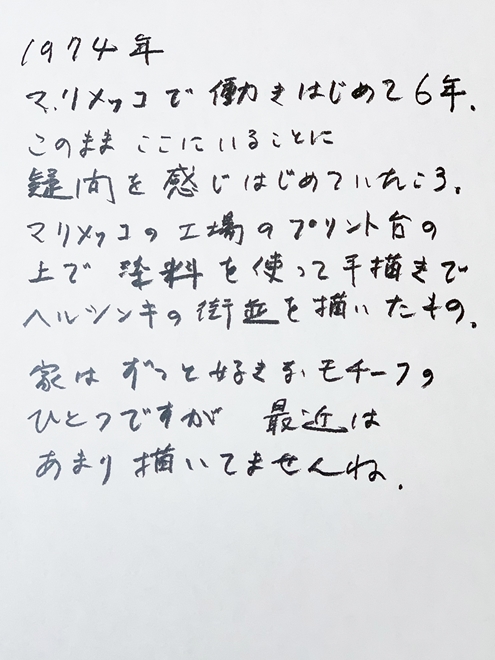 1974年
マリメッコで働きはじめて6年.
このまま ここにいることに
疑問を感じはじめていたころ.
マリメッコの工場のプリント台の
上で 染料を使って手描きで
ヘルシンキの街並を描いたもの.
家は ずっと好きなモチーフの
ひとつですが 最近は
あまり描いてませんね.